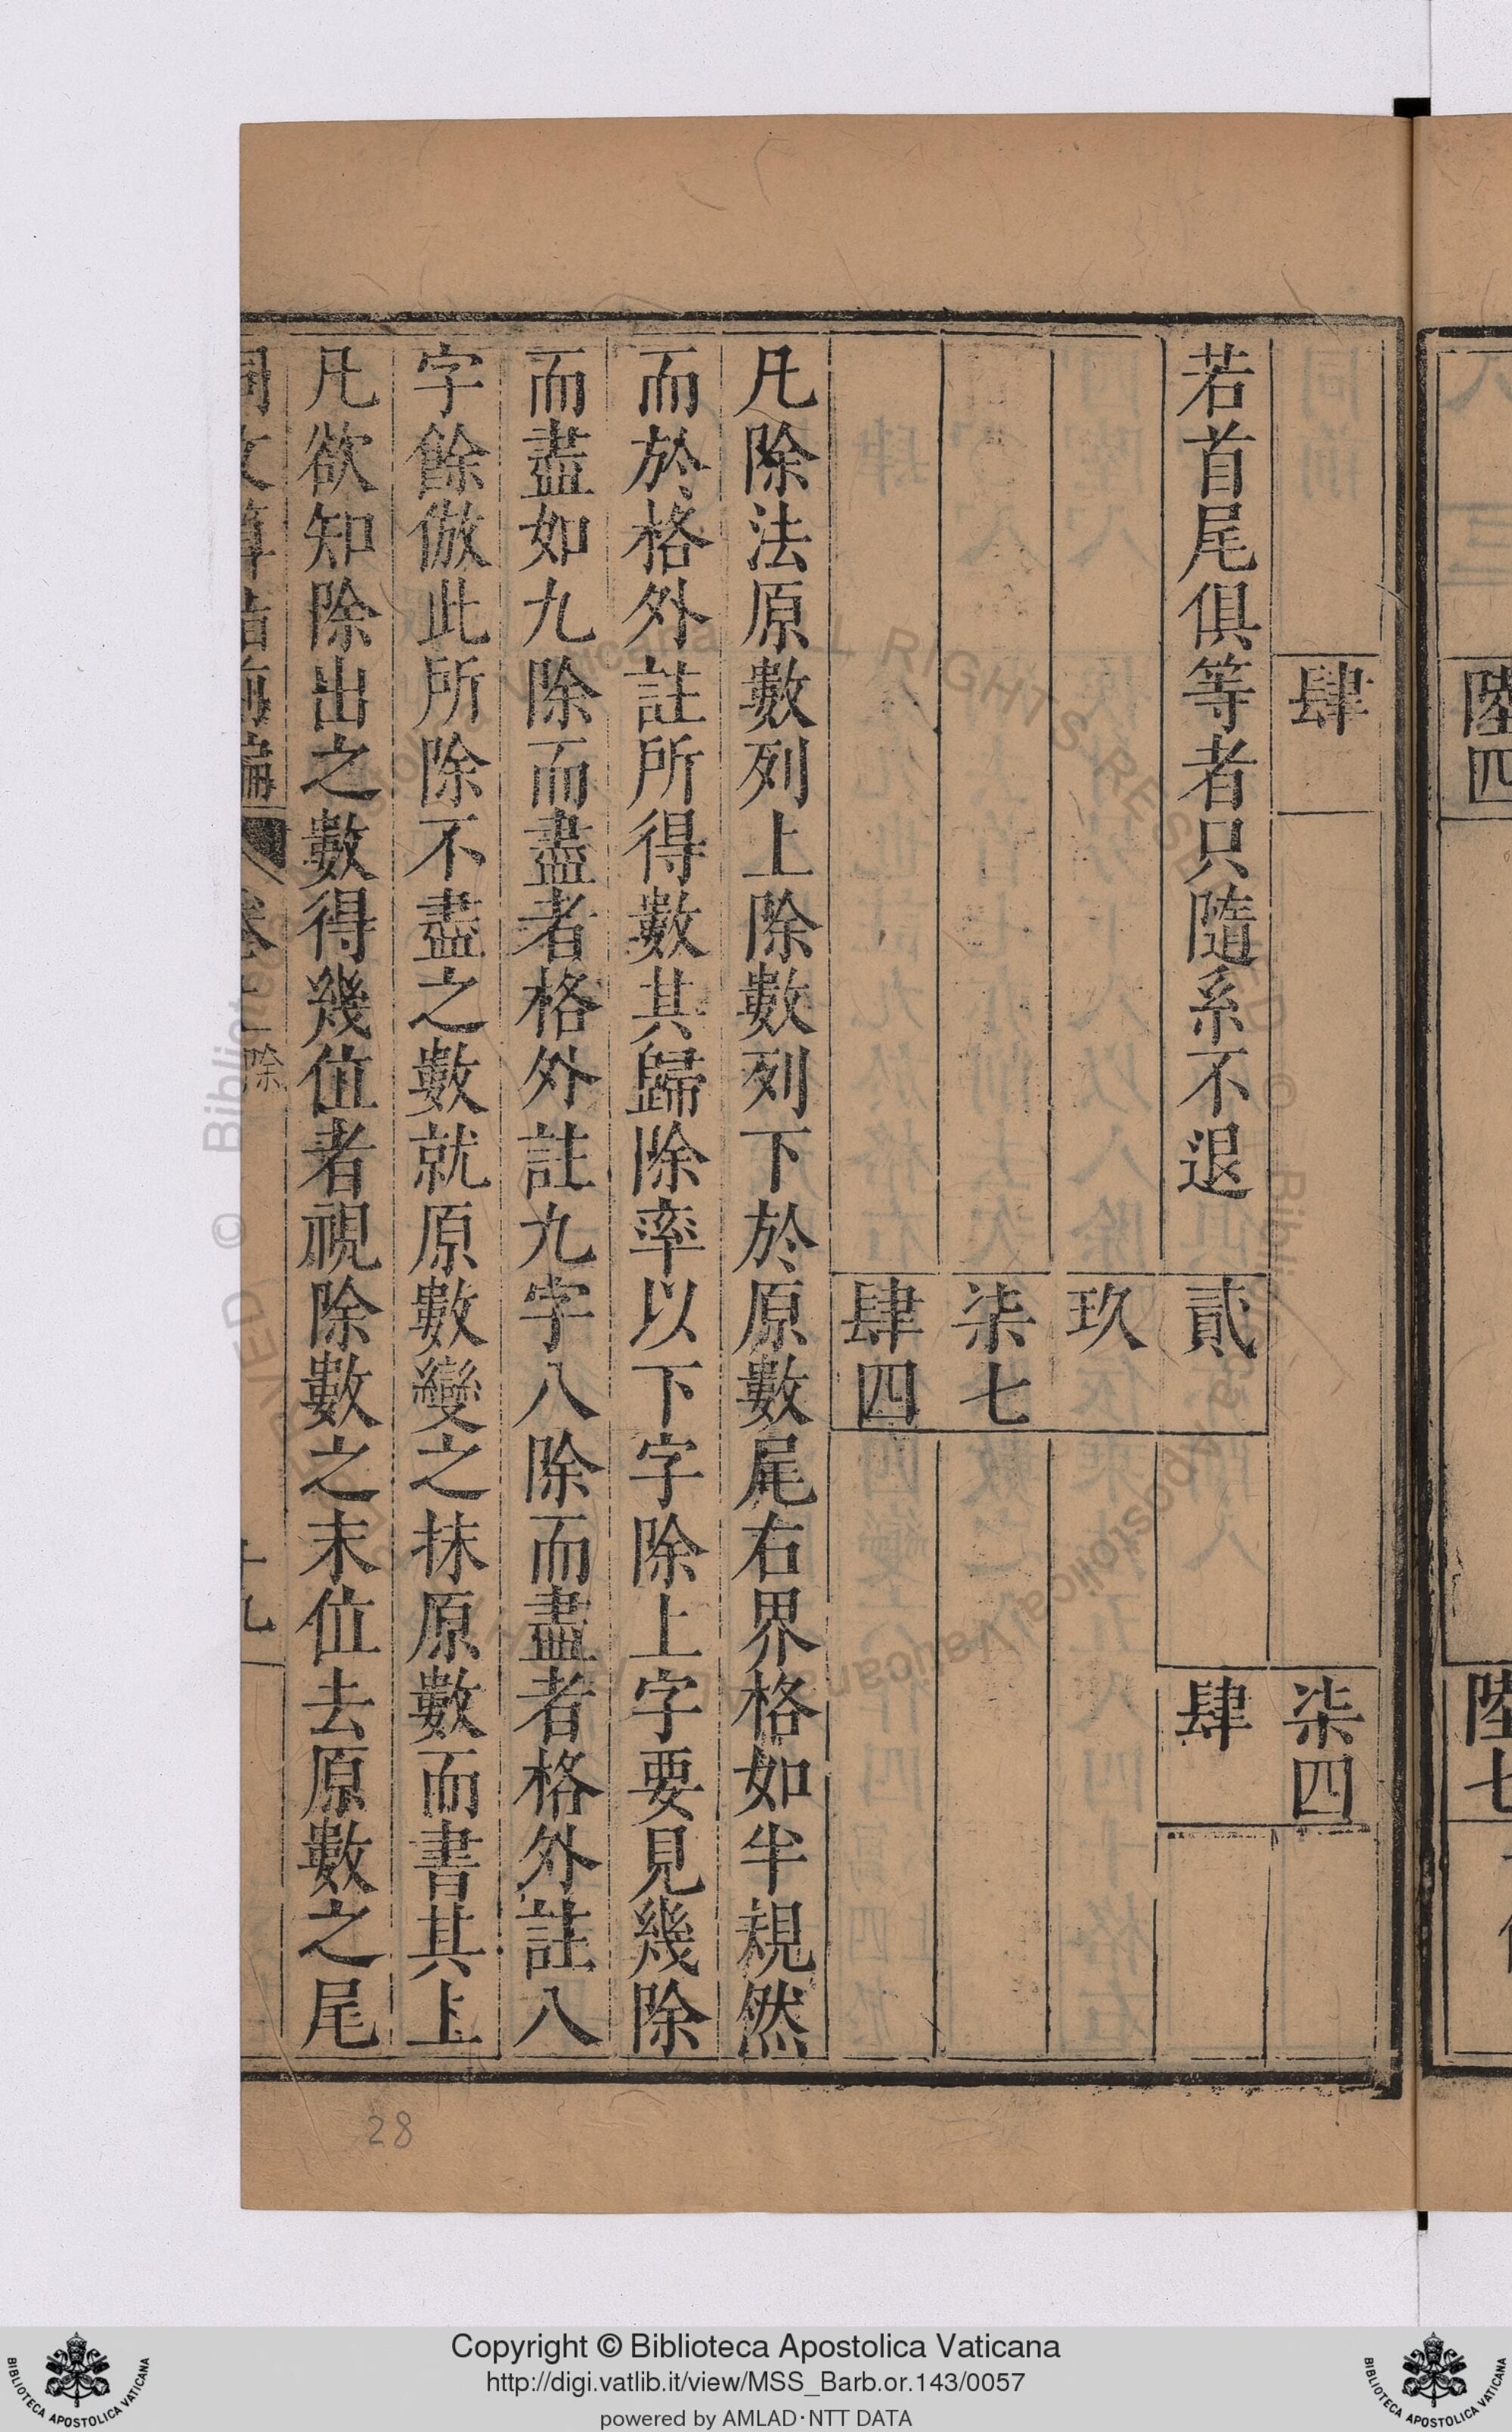 肆
柒四
若首尾俱等者只隨系不退
貳
肆
玖
柒七
肆四
凡除法原數列上除數列下於原數尾右界格如半規然
而於格外註所得數其歸除率以下字除上字要見幾除
而盡如九除而盡者格外註九字八除而盡者格外註八
字餘倣此所除不盡之數就原數變之抹原數而書其上
凡欲知除出之數得幾位者視除數之末位去原數之尾
除
十九
28
陸四
陸七
Copyright © Biblioteca Apostolica Vaticana
http://digi.vatlib.it/view/MSS_Barb.or.143/0057
powered by AMLAD·NTT DATA
BIBLIOTECA APOSTOLICA VATICANA
BIBLIOTECA APOSTOLICA VATICANA